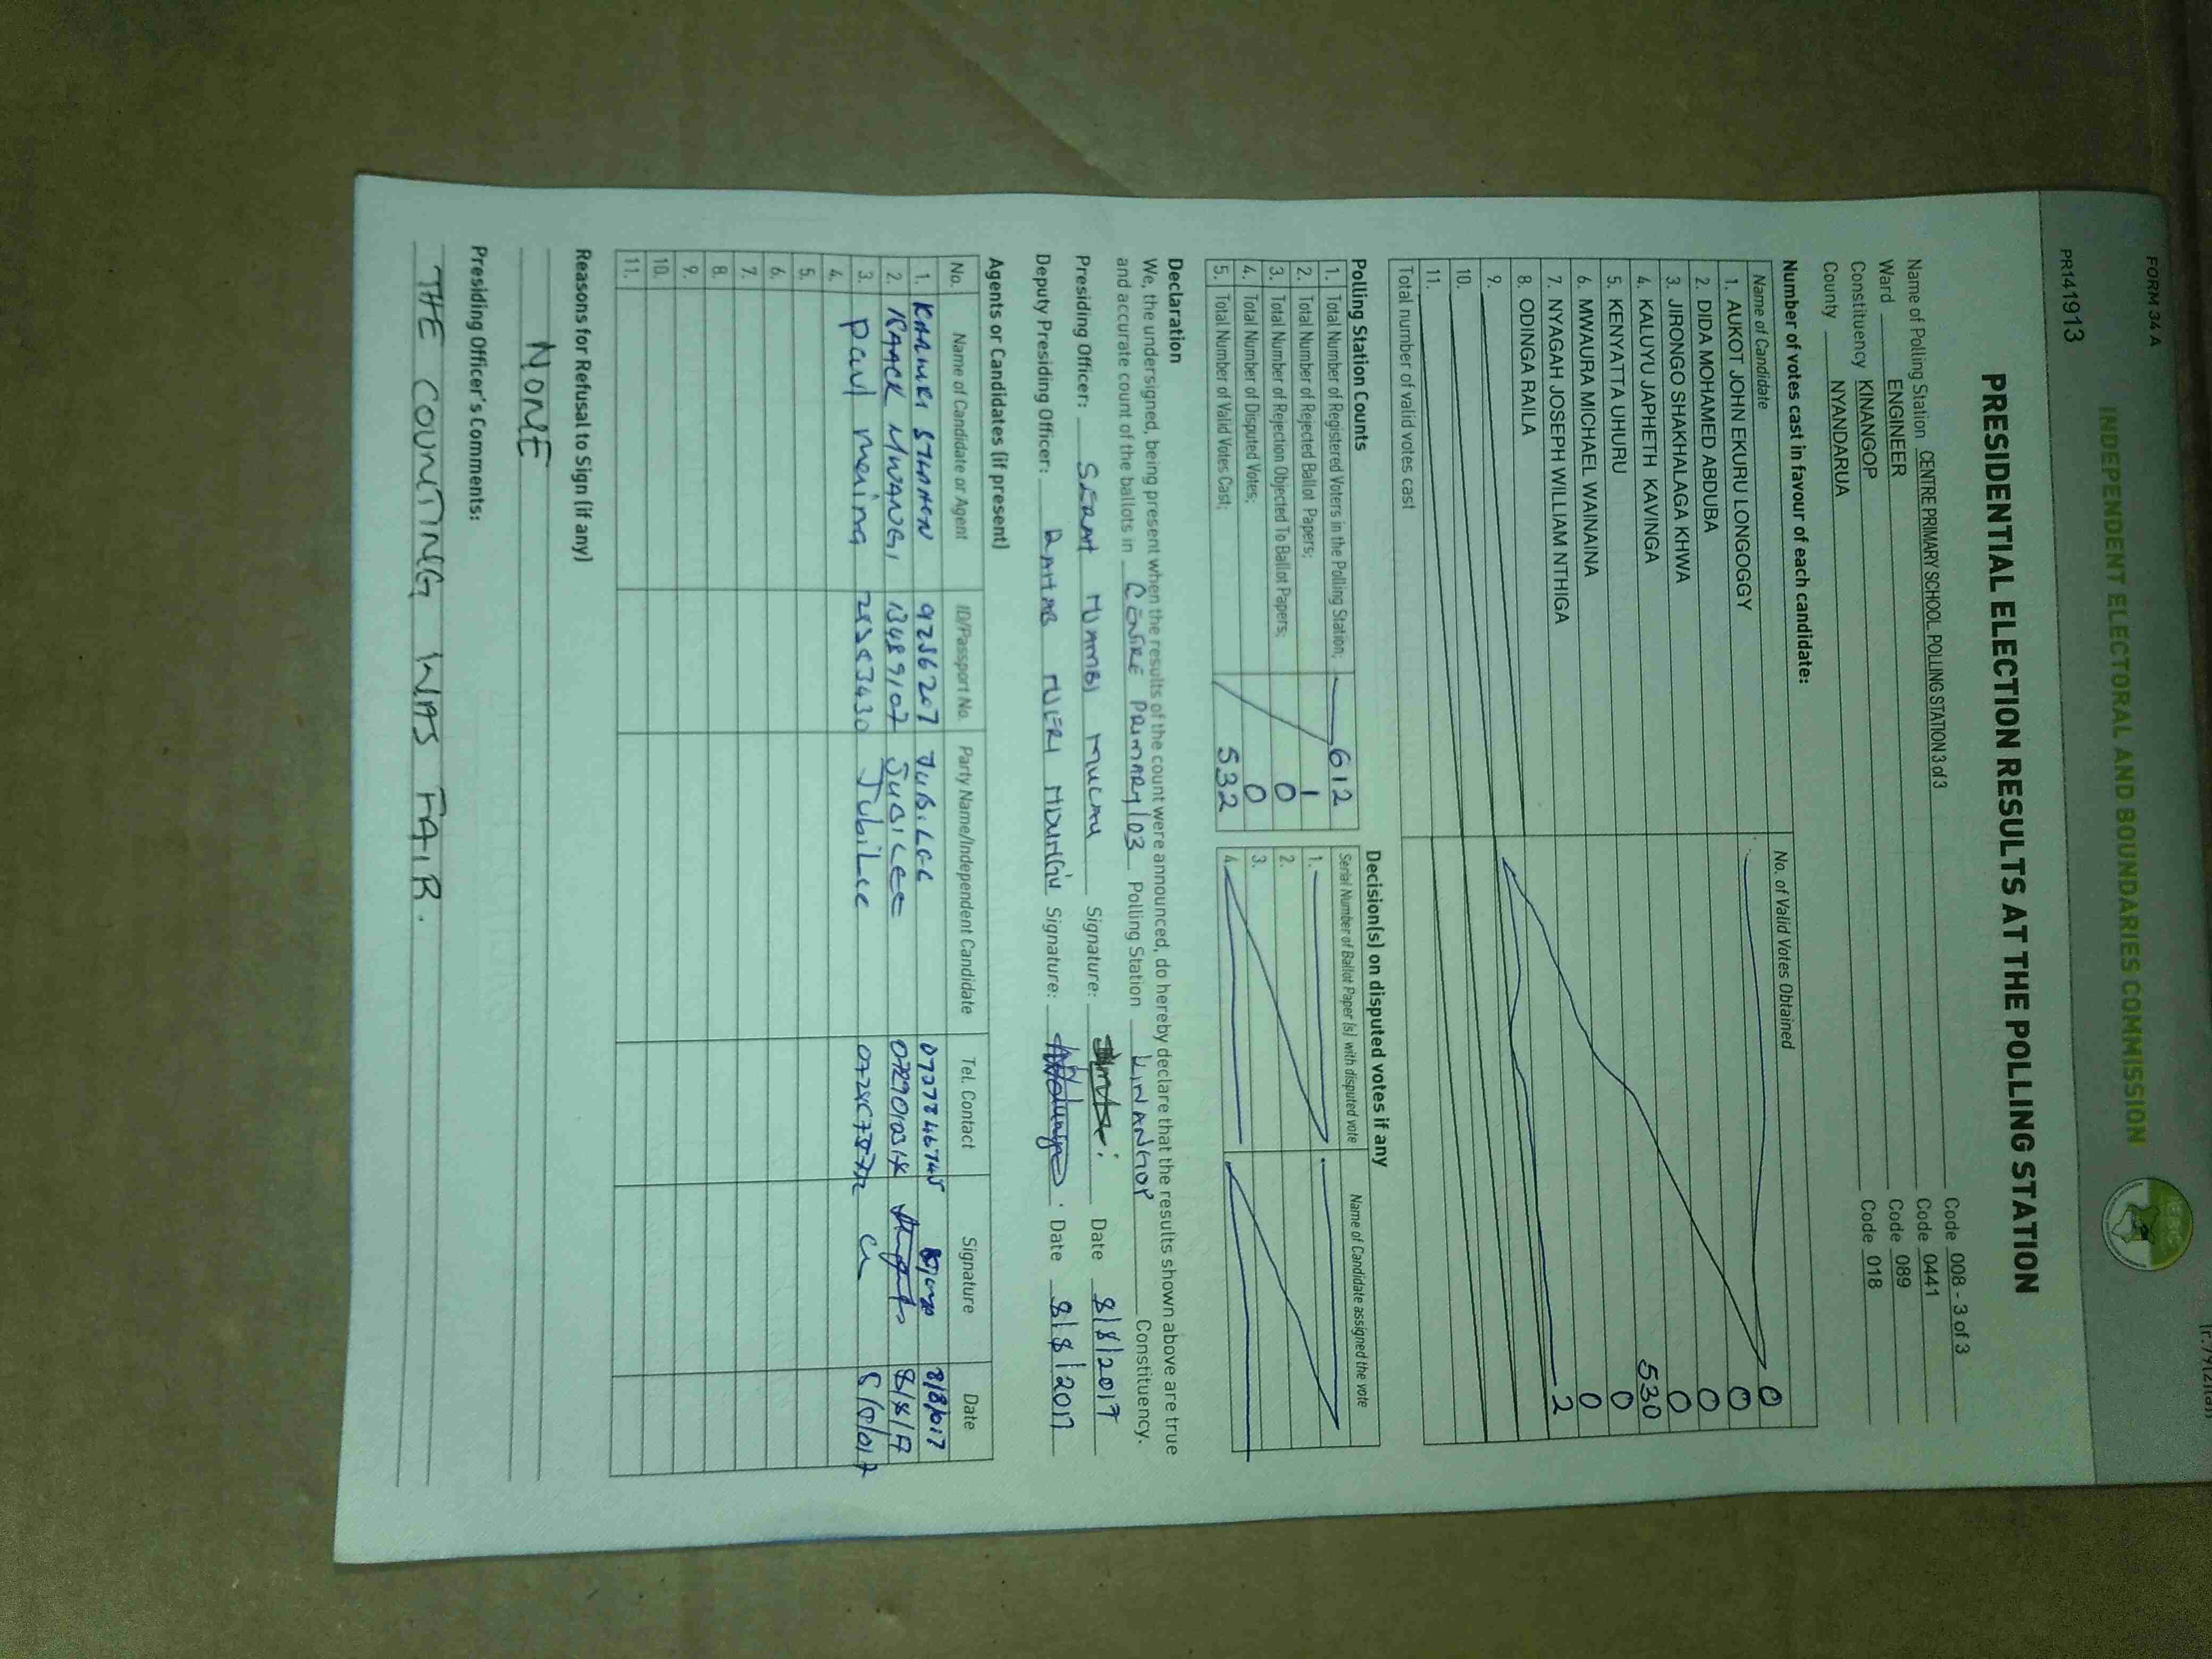 FORM 34 A
INDEPENDENT ELECTORAL AND BOUNDARIES COMMISSION
IEBC
PR141913
PRESIDENTIAL ELECTION RESULTS AT THE POLLING STATION
Name of Polling Station CENTRE PRIMARY SCHOOL. POLLING STATION 3 of 3 Code 008 - 3 of 3
Ward ENGINEER Code 0441
Constituency KINANGOP Code 089
County NYANDARUA Code 018
Number of votes cast in favour of each candidate:
Name of Candidate No. of Valid Votes Obtained
1. AUKOT JOHN EKURU LONGOGGY 0
2. DIDA MOHAMED ABDUBA 0
3. JIRONGO SHAKHALAGA KHWA 0
4. KALUYU JAPHETH KAVINGA 0
5. KENYATTA UHURU 530
6. MWAURA MICHAEL WAINAINA 0
7. NYAGAH JOSEPH WILLIAM NTHIGA 0
8. ODINGA RAILA 2
9.
10.
11.
Total number of valid votes cast
Polling Station Counts
1. Total Number of Registered Voters in the Polling Station; 612
2. Total Number of Rejected Ballot Papers; 1
3. Total Number of Rejection Objected To Ballot Papers; 0
4. Total Number of Disputed Votes; 0
5. Total Number of Valid Votes Cast; 532
Decision(s) on disputed votes if any
Serial Number of Ballot Paper (s) with disputed vote Name of Candidate assigned the vote
1.
2.
3.
4.
Declaration
We, the undersigned, being present when the results of the count were announced, do hereby declare that the results shown above are true
and accurate count of the ballots in CENTRE PRIMARY/03 Polling Station KINANGOP Constituency.
Presiding Officer: Signature: Date 8/8/2017
Deputy Presiding Officer: Signature: Date 8/8/2017
Agents or Candidates (if present)
No. Name of Candidate or Agent ID/Passport No. Party Name/Independent Candidate Tel. Contact Signature Date
1. KAMURI STEPHEN 9256207 JUBILEE
2. ISAACK MWANGI 13489107 JUBILEE 8/8/17
3. Paul Jubilee
4.
5.
6.
7.
8.
9.
10.
11.
Reasons for Refusal to Sign (if any)
NONE
Presiding Officer's Comments:
THE COUNTING WAS FAIR.